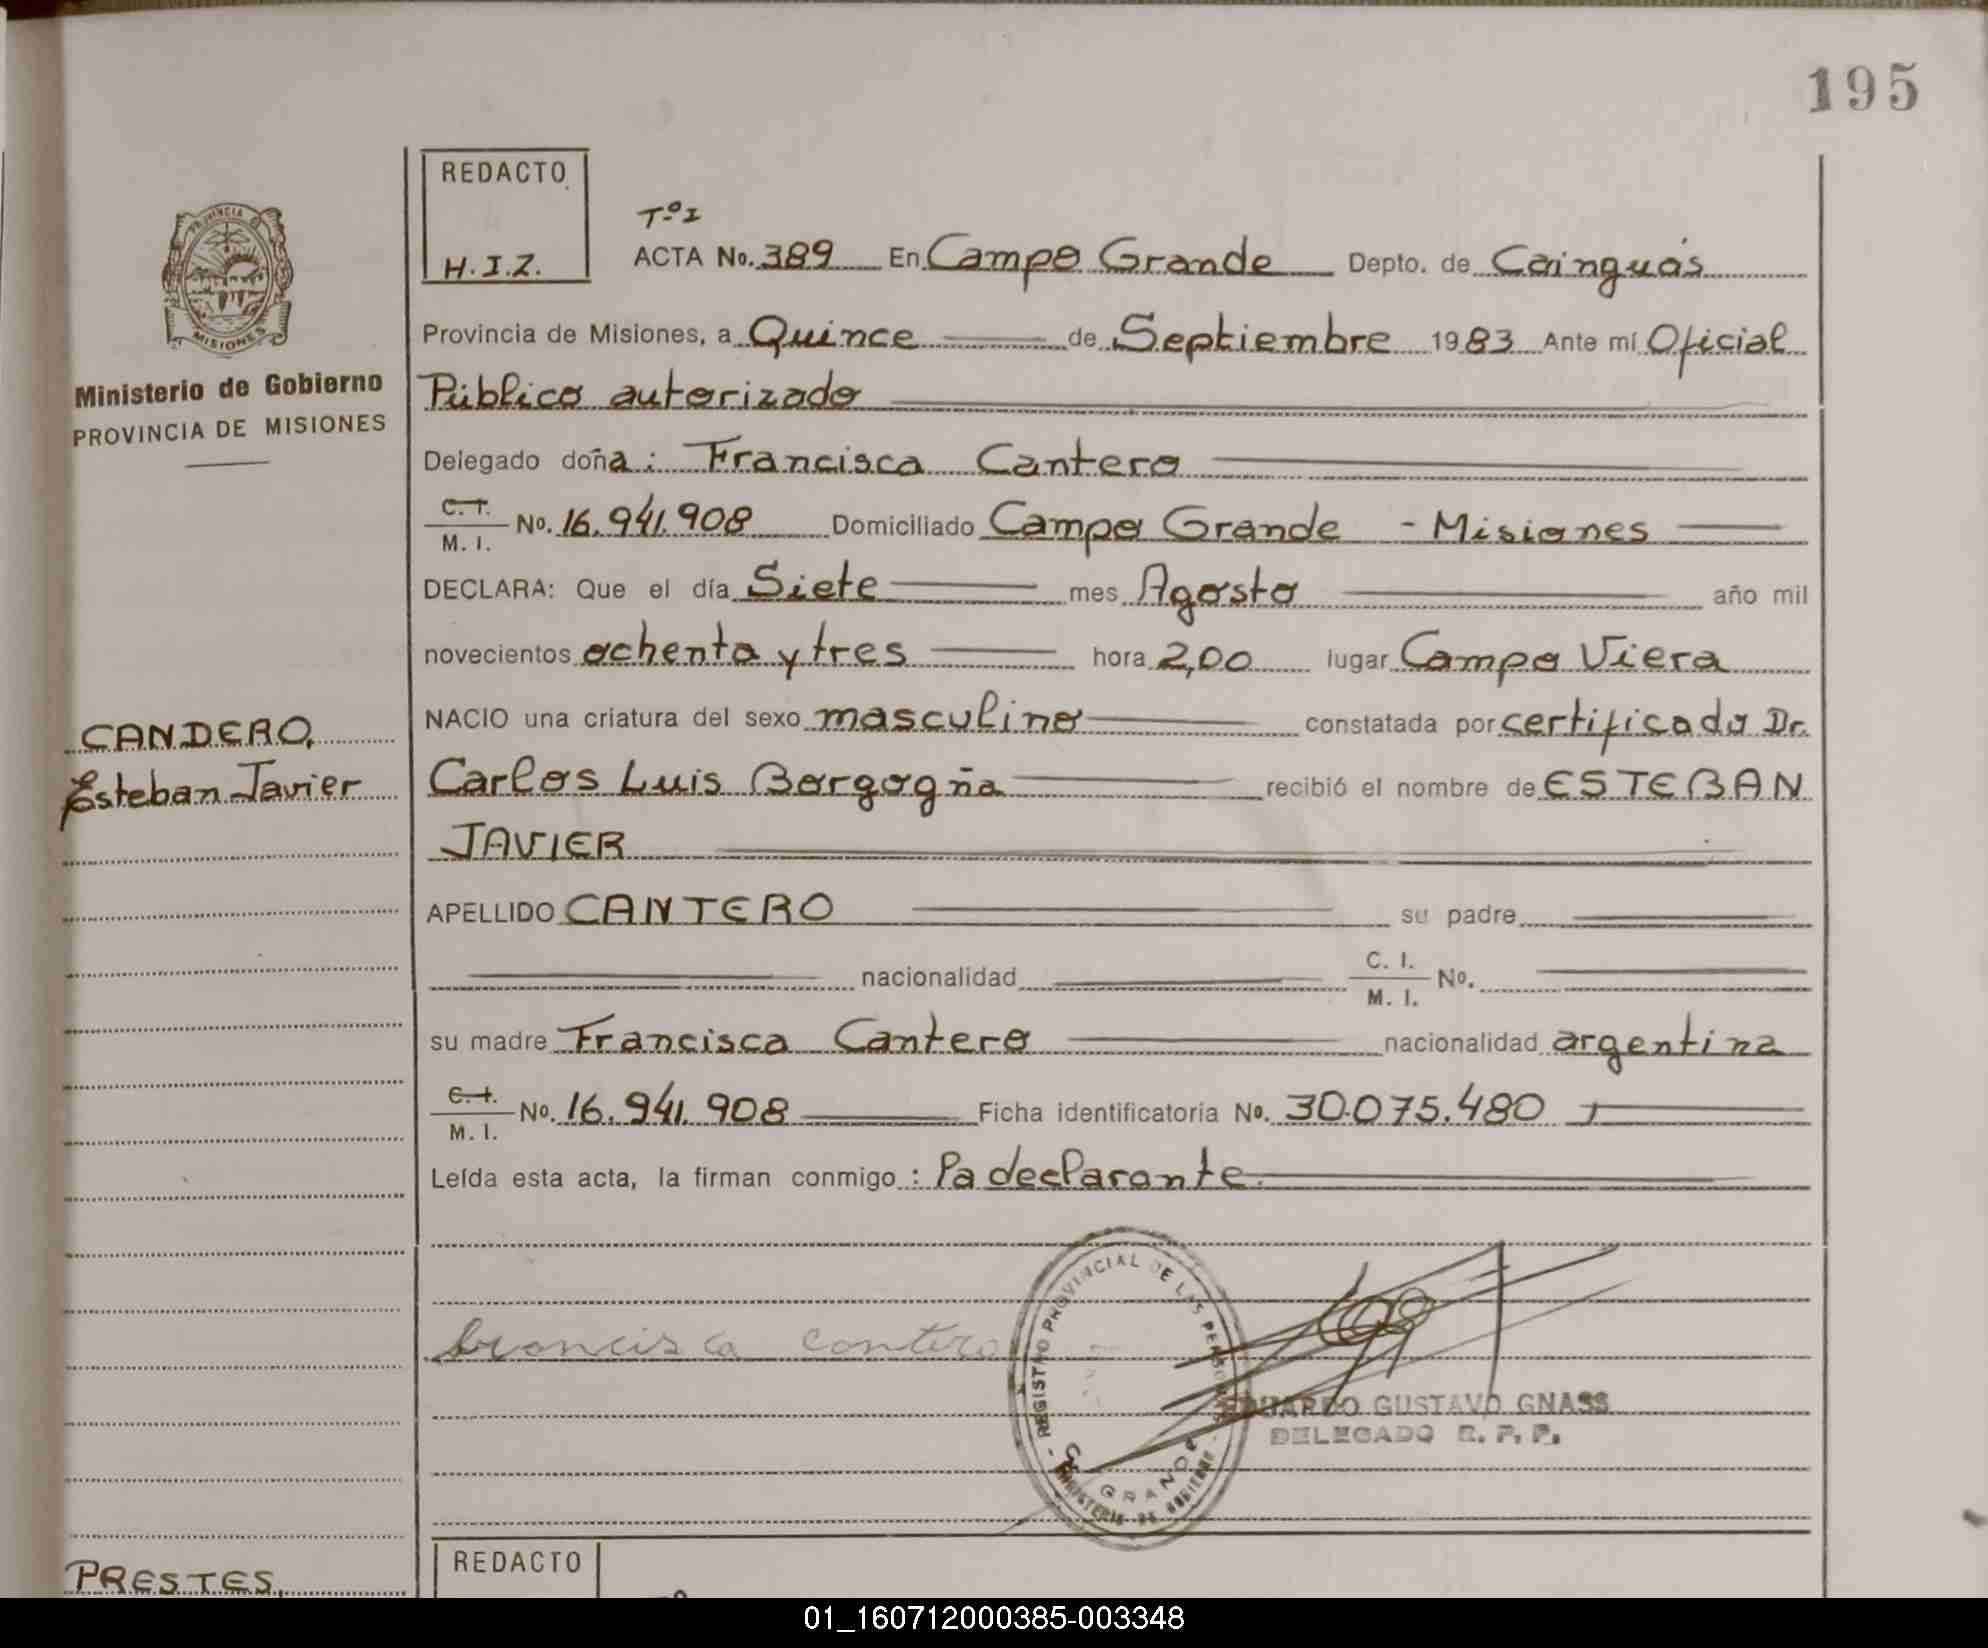 195
REDACTO
H.I.Z.
Tº I
ACTA No. 389 En Campo Grande Depto. de Cainguás
Provincia de Misiones, a Quince de Septiembre 1983 Ante mí Oficial
Público autorizado
Delegado doña: Francisca Cantero
C. I.
M. I. No. 16.941.908 Domiciliado Campo Grande - Misiones
DECLARA: Que el día Siete mes Agosto año mil
novecientos ochenta y tres hora 2,00 lugar Campo Viera
NACIO una criatura del sexo masculino constatada por certificado Dr.
Carlos Luis Borgogña recibió el nombre de ESTEBAN
JAVIER
APELLIDO CANTERO su padre
nacionalidad C. I.
M. I. No.
su madre Francisca Cantero nacionalidad argentina
C. I.
M. I. No. 16.941.908 Ficha identificatoria No. 30.075.480
Leída esta acta, la firman conmigo: la declarante.
francisca cantero
REGISTRO PROVINCIAL DE LAS PERSONAS
GRANDE
MINISTERIO DE GOBIERNO
EDUARDO GUSTAVO GNASS
DELEGADO R. P. P.
PROVINCIA DE
MISIONES
Ministerio de Gobierno
PROVINCIA DE MISIONES
CANDERO,
Esteban Javier
PRESTES,
REDACTO
01_160712000385-003348